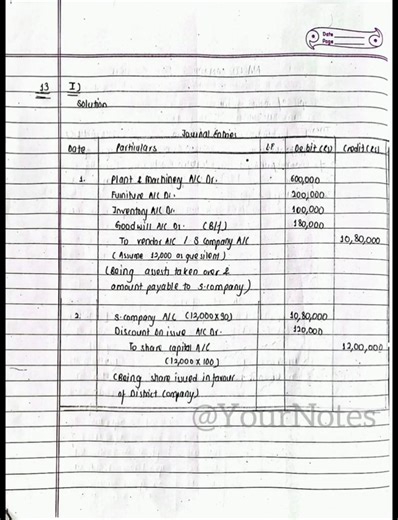 Date
Page
13 I)
Solution
Journal Entries
Date Particulars LF Debit (Rs) Credit (Rs)
1. Plant & Machinery A/C Dr. 600,000
Furniture A/C Dr. 200,000
Inventory A/C Dr. 100,000
Goodwill A/C Dr. (B/f) 180,000
To vendor A/C / S Company A/C 10,80,000
(Assume 12,000 as que silent)
(Being assets taken over &
amount payable to s-company)
2. S-company A/C (12,000 x 90) 10,80,000
Discount on issue A/C Dr. 120,000
To share capital A/C 12,00,000
(12,000 x 100)
(Being share issued in favour
of District Company)
@YourNotes